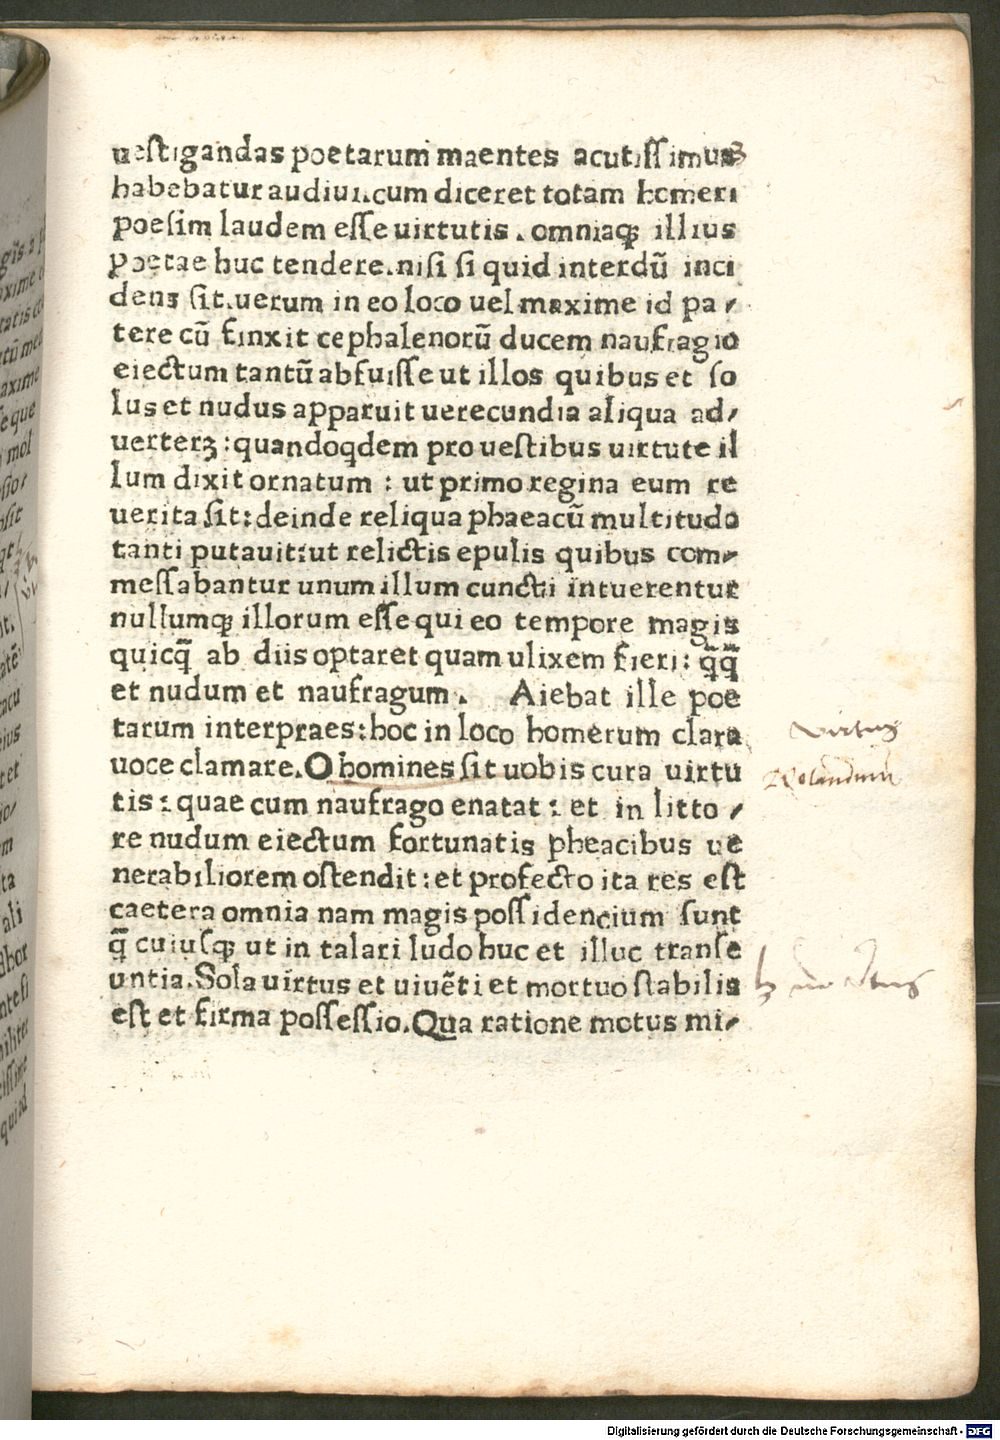 ueſtigandas poetarum maentes acutiſſimus
habebatur audiui.cum diceret totam homeri
poeſim laudem eſſe uirtutis .omniaqꝫ illius
poetae huc tendere.niſi ſi quid interdū inci
dens ſit.uerum in eo loco uel maxime id pa⸗
tere cū finxit cephalenorū ducem naufragio
eiectum tantū abfuiſſe ut illos quibus et ſo
lus et nudus apparuit uerecundia aliqua ad⸗
uerterꝫ :quandoqdem pro ueſtibus uirtute il
lum dixit ornatum : ut primo regina eum re
uerita ſit:deinde reliqua phaeacū multitudo
tanti putauit:ut relictis epulis quibus com⸗
meſſabantur unum illum cuncti intuerentur
nullumqꝫ illorum eſſe qui eo tempore magis
quicq̄ ab diis optaret quam ulixem fieri: q̄q̄
et nudum et naufragum . Aiebat ille poe
tarum interpraes:hoc in loco homerum clara
uoce clamare.O homines ſit uobis cura uirtu
tis : quae cum naufrago enatat : et in litto ⸗
re nudum eiectum fortunatis pheacibus ue
nerabiliorem oſtendit:et profecto ita res eſt
caetera omnia nam magis poſſidencium ſunt
q̄ cuiuſqꝫ ut in talari ludo huc et illuc tranſe
untia.Sola uirtus et uiuēti et mortuo ſtabilis
eſt et firma poſſeſſio.Qua ratione motus mi⸗
virtus
uirtus
Digitalisierung gefördert durch die Deutsche Forschungsgemeinschaft - DFG